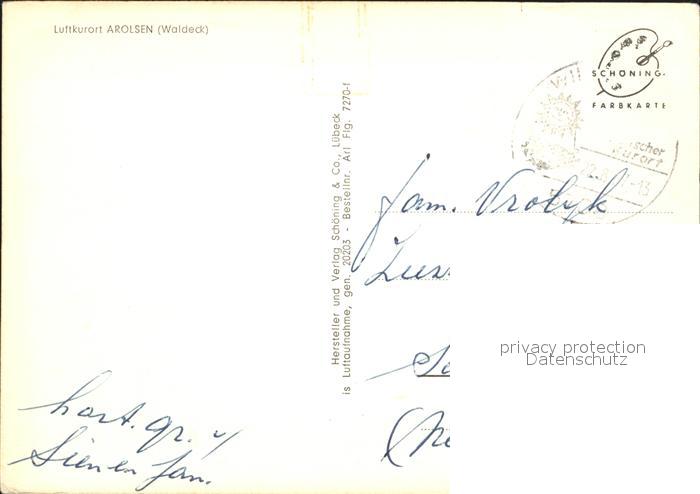 Luftkurort AROLSEN (Waldeck)
SCHÖNING-
FARBKARTE
Hersteller und Verlag Schöning & Co., Lübeck
is Luftaufnahme, gen. 20203 - Bestellnr. Arl Flg. 7270-f
ischer
Kurort
-13
fam. Vrolyk
(Ne
privacy protection
Datenschutz
hart. gr. v
Sien en Jan.